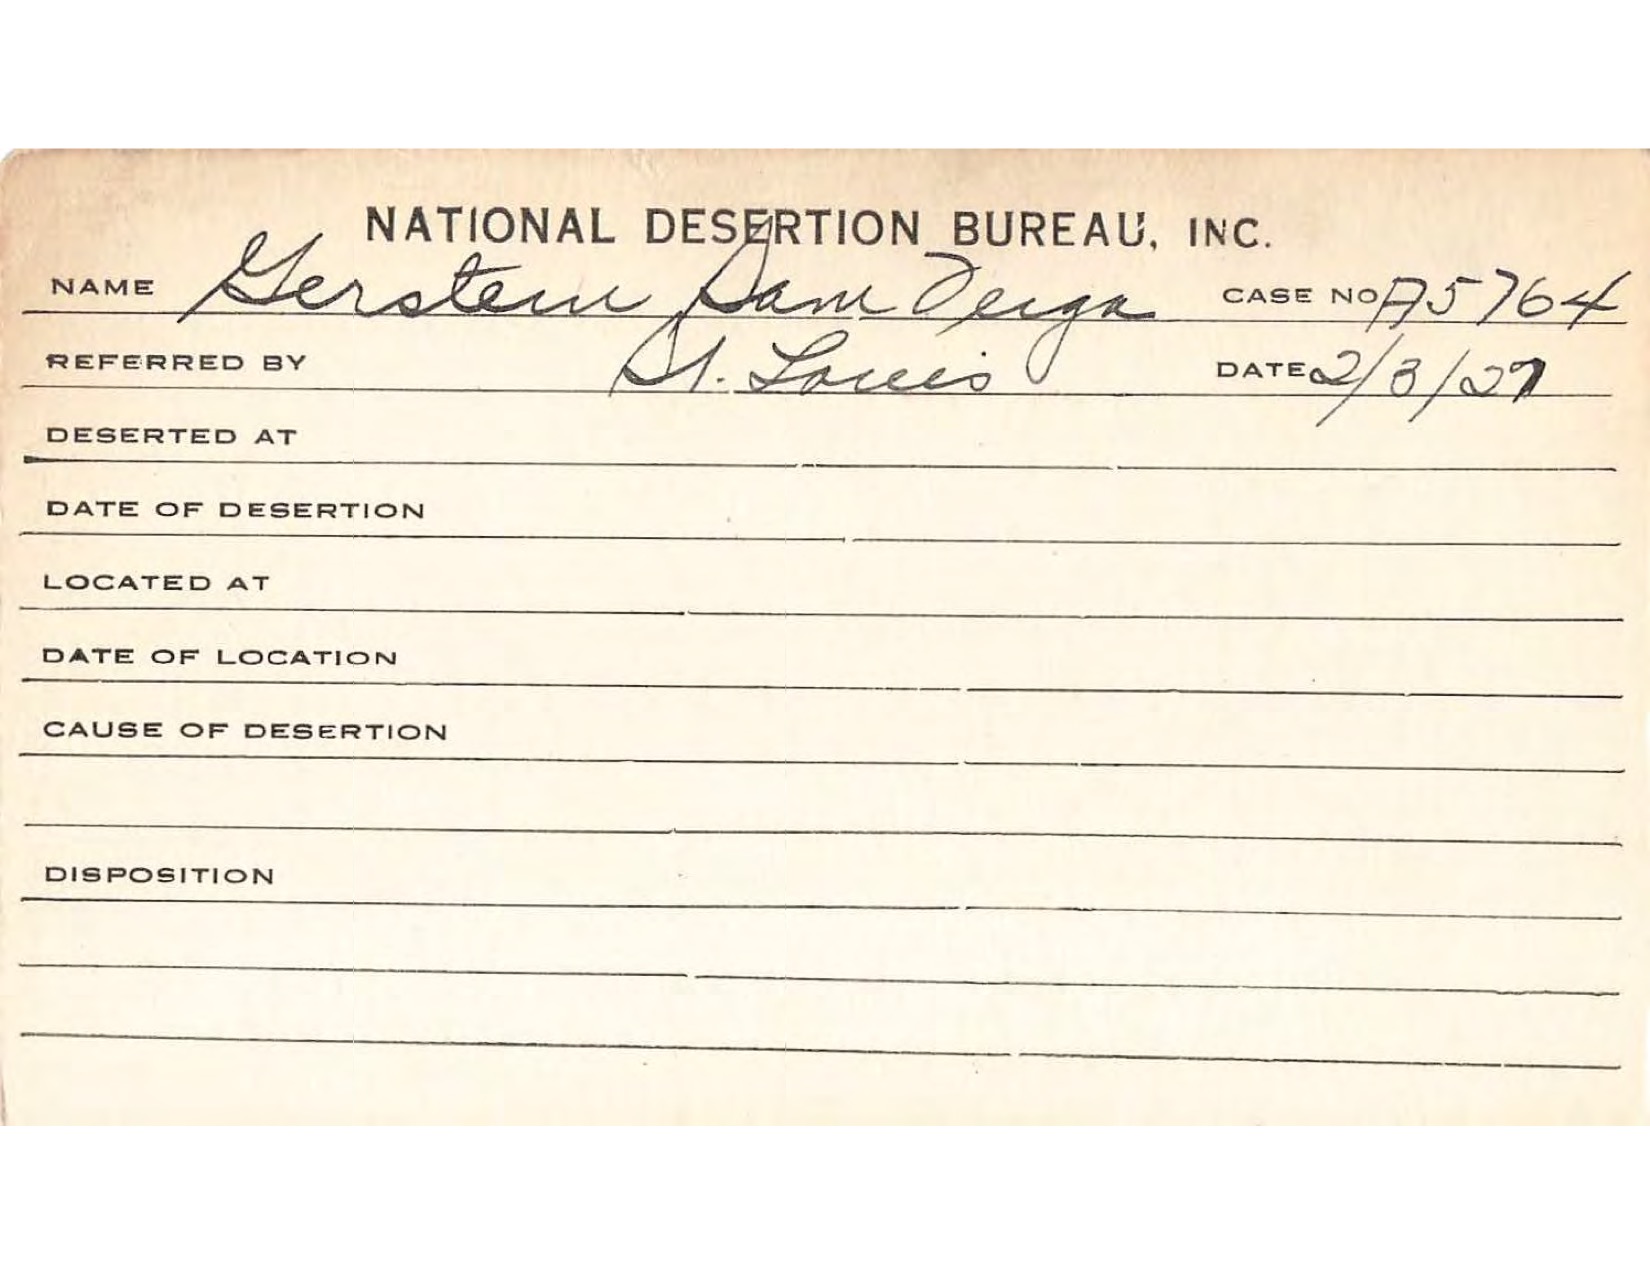 NATIONAL DESERTION BUREAU, INC.
NAME Gerstein Sam Feiga CASE NO A5764
REFERRED BY St. Louis DATE 2/3/27
DESERTED AT
DATE OF DESERTION
LOCATED AT
DATE OF LOCATION
CAUSE OF DESERTION
DISPOSITION